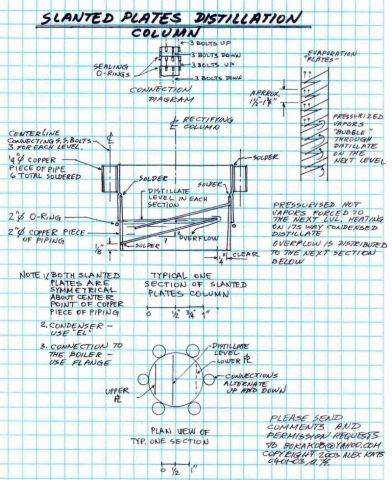 SLANTED PLATES DISTILLATION
COLUMN
3 BOLTS UP
3 BOLTS DOWN
3 BOLTS UP
3 BOLTS DOWN
SEALING
O-RINGS
CONNECTION
DIAGRAM
EVAPORATION
"PLATES"
APPROX.
PRESSURIZED
VAPORS
"BUBBLE"
THROUGH
DISTILLATE
ON THE
NEXT LEVEL
RECTIFYING
COLUMN
CENTERLINE
CONNECTING S.S. BOLTS
3 FOR EACH LEVEL.
COPPER
PIECE OF PIPE
6 TOTAL SOLDERED
SOLDER
SOLDER
SOLDER
DISTILLATE
LEVEL IN EACH
SECTION
2"Ø O-RING
2"Ø COPPER PIECE
OF PIPING
1/8"
SOLDER
OVERFLOW
CLEAR
PRESSURISED HOT
VAPORS FORCED TO
THE NEXT LVL. HEATING
ON ITS WAY CONDENSED
DISTILLATE
OVERFLOW IS DISTRIBUTED
TO THE NEXT SECTION
BELOW
NOTE: 1. BOTH SLANTED
PLATES ARE
SYMMETRICAL
ABOUT CENTER
POINT OF COPPER
PIECE OF PIPING
2. CONDENSER -
USE "EL"
3. CONNECTION TO
THE BOILER -
USE FLANGE
TYPICAL ONE
SECTION OF SLANTED
PLATES COLUMN
0 1/2 3/4 1"
DISTILLATE
LEVEL
LOWER PL
CONNECTIONS
ALTERNATE
UP AND DOWN
UPPER
PL
PLAN VIEW OF
TYP. ONE SECTION
0 1/2 1"
PLEASE SEND
COMMENTS AND
PERMISSION REQUESTS
TO BOKAKOB@YAHOO.COM
COPYRIGHT 2003 ALEX KATS